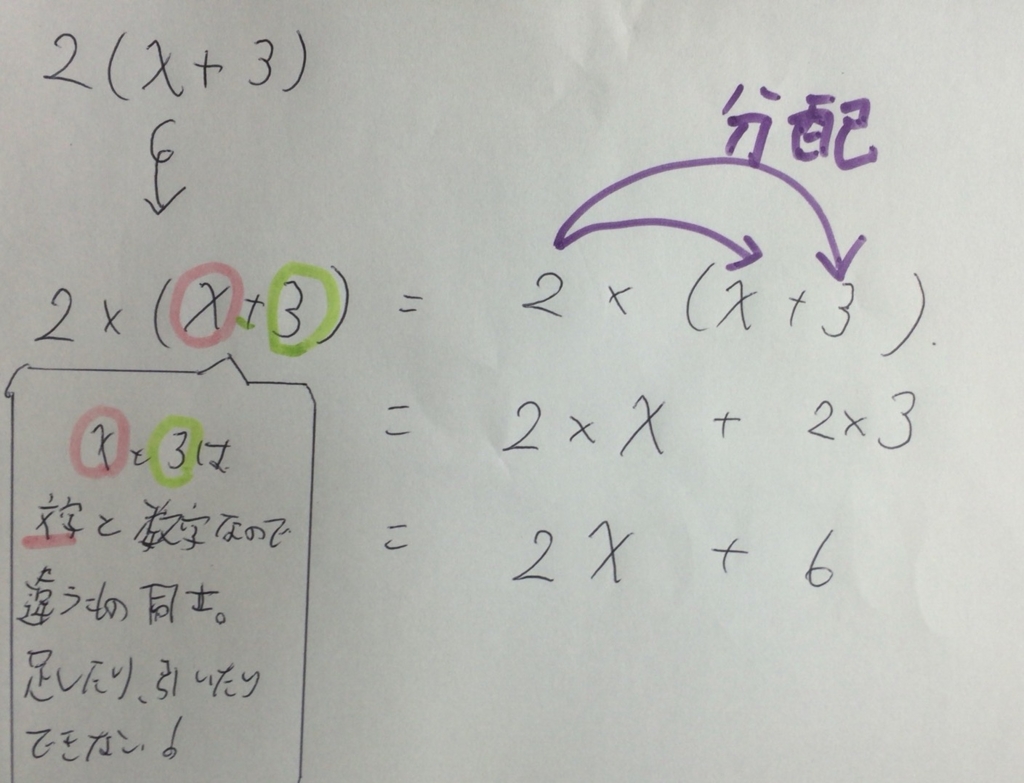 2(x+3)
分配
2×(x+3) = 2 × (x+3).
= 2×x + 2×3
= 2x + 6
xと3は
文字と数字なので
違うもの同士。
足したり、引いたり
できない。